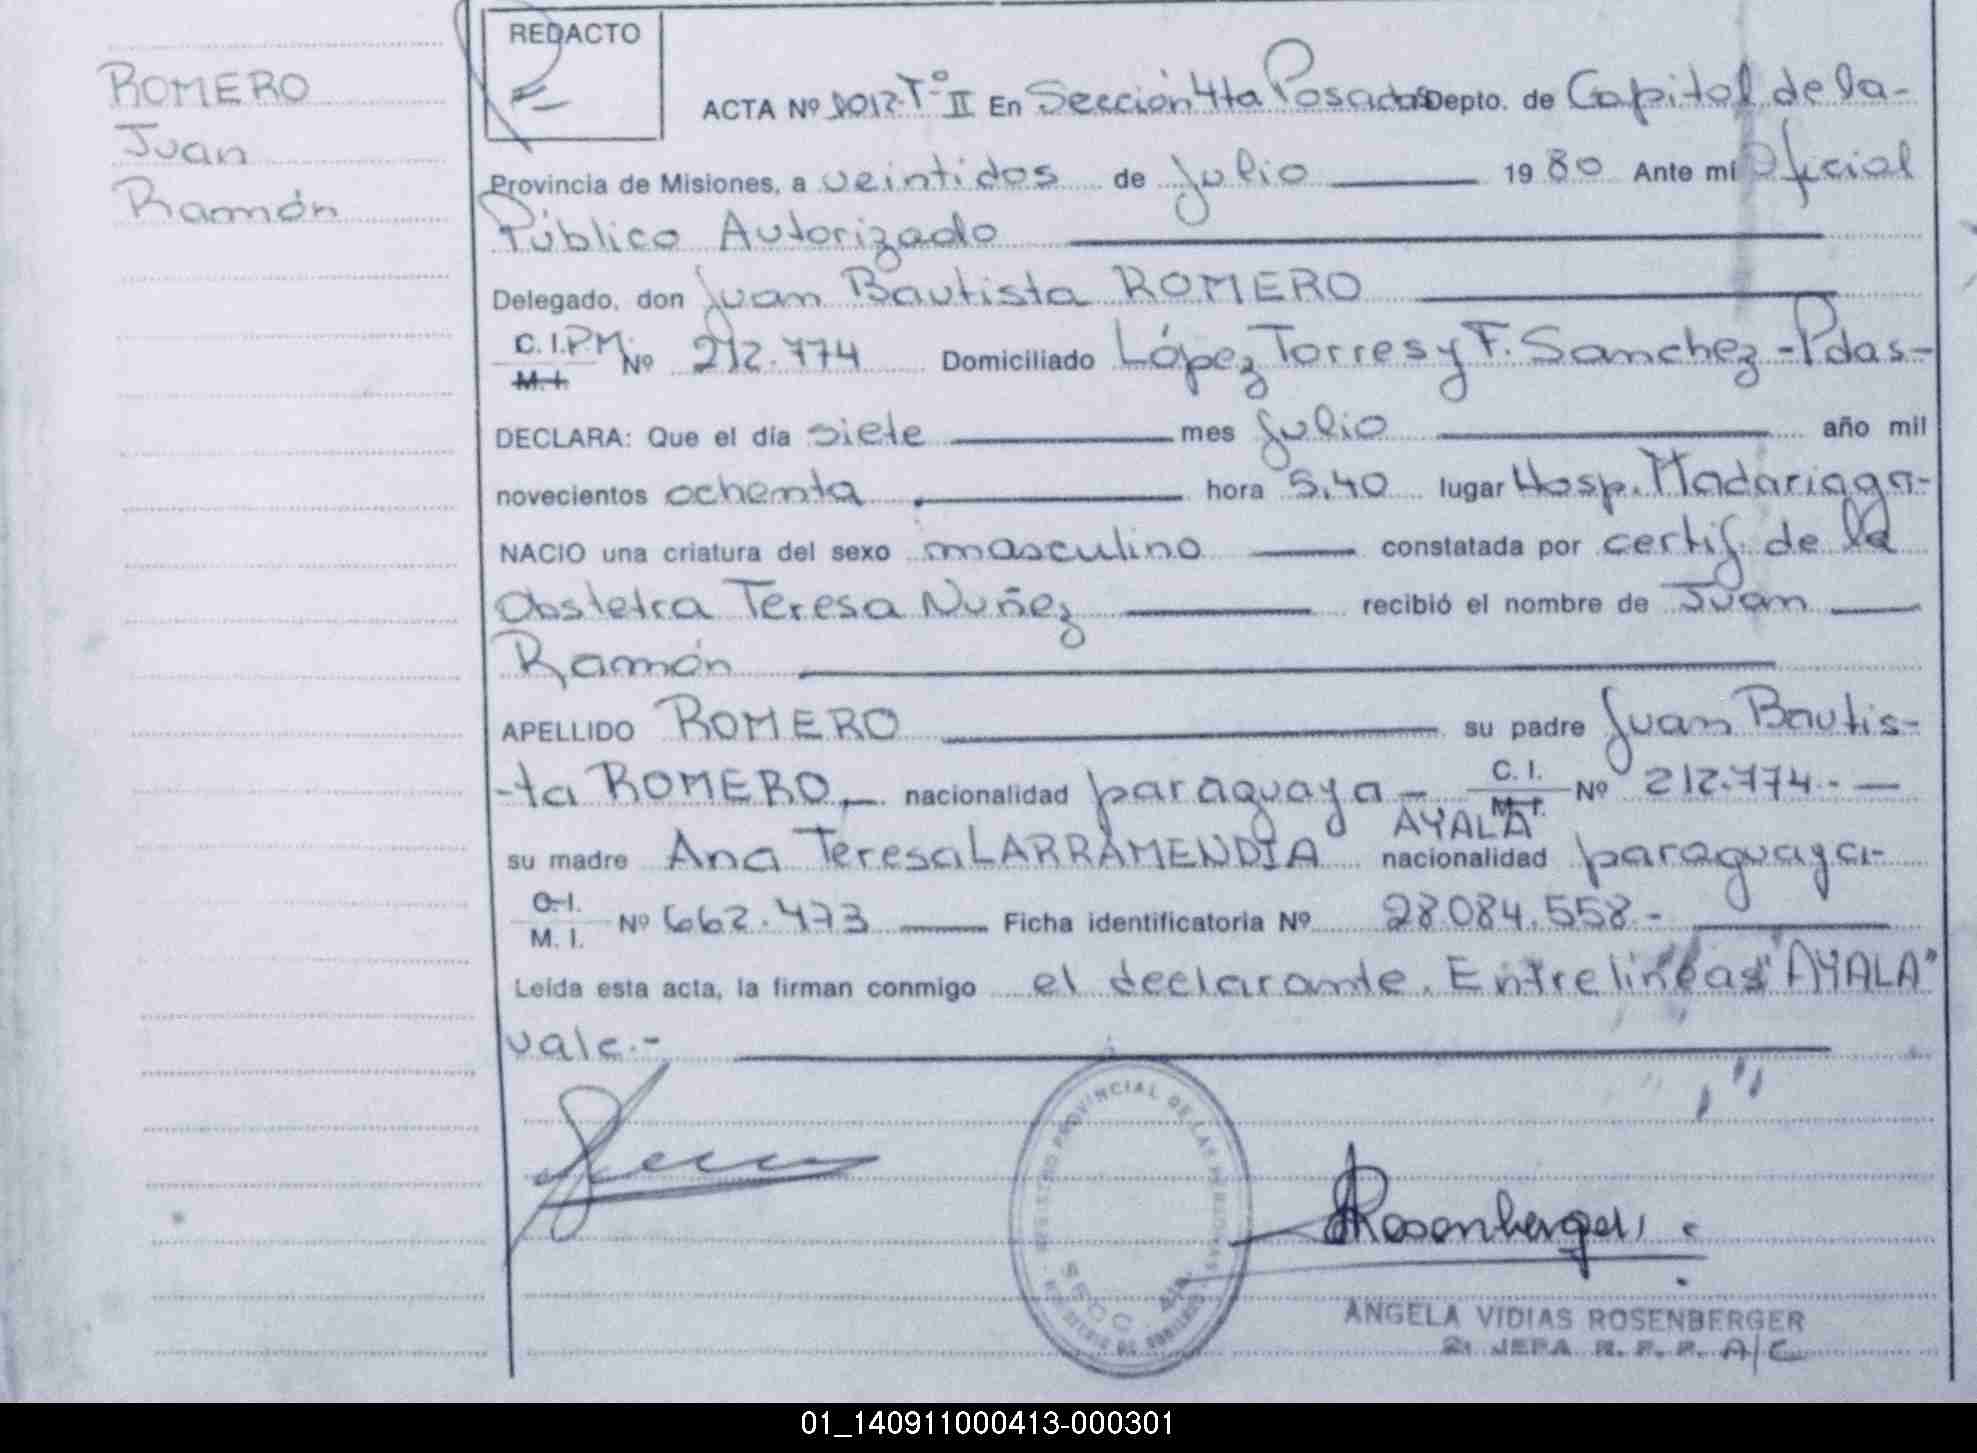 ROMERO
Juan
Ramón
REDACTO
ACTA Nº 1012-Tº II En Sección 4ta Posadas Depto. de Capital de la-
Provincia de Misiones, a veintidos de Julio 1980 Ante mí Oficial
Público Autorizado
Delegado, don Juan Bautista ROMERO
C. I. P.M. M. I. Nº 212.774 Domiciliado López Torres y F. Sanchez -Pdas-
DECLARA: Que el día siete mes Julio año mil
novecientos ochenta hora 5,40 lugar Hosp. Madariaga-
NACIO una criatura del sexo masculino constatada por certif. de la
Obstetra Teresa Nuñez recibió el nombre de Juan
Ramón
APELLIDO ROMERO su padre Juan Bautis-
-ta ROMERO nacionalidad paraguaya- C. I. M. I. Nº 212.774.-
AYALA
su madre Ana Teresa LARRAMENDIA nacionalidad paraguaya-
C. I. M. I. Nº 662.473 Ficha identificatoria Nº 28.084.558-
Leída esta acta, la firman conmigo el declarante. Entrelíneas "AYALA"
vale.-
REGISTRO PROVINCIAL DE LAS PERSONAS
SECC. 4ta.
MINISTERIO DE GOBIERNO
Rosenberger
ANGELA VIDIAS ROSENBERGER
2ª JEFA R. P. P. A/C
01_140911000413-000301